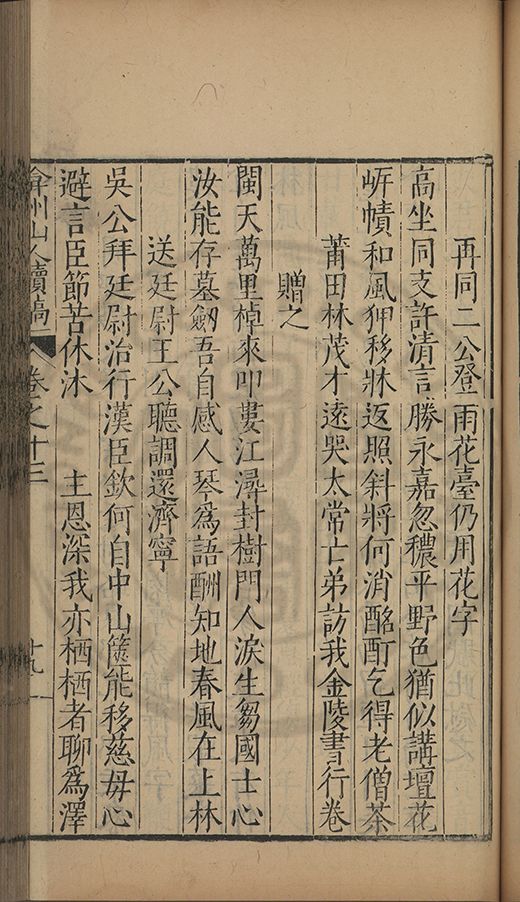 再同二公登雨花臺仍用花字
高坐同支許清言勝永嘉忽穠平野色猶似講壇花
岸幘和風狎移牀返照斜將何消酩酊乞得老僧茶
莆田林茂才遠哭太常亡弟訪我金陵書行卷
贈之
閩天萬里棹來叩婁江潯封樹門人淚生芻國士心
汝能存墓劒吾自感人琴為語酬知地春風在上林
送廷尉王公聽調還濟寧
吳公拜廷尉治行漢臣欽何自中山篋能移慈母心
避言臣節苦休沐 主恩深我亦栖栖者聊為澤
弇州山人續稿 卷之十三 十九